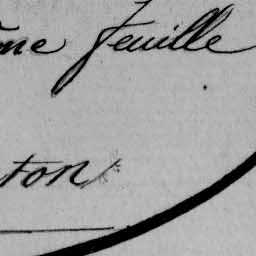 me feuille
ton